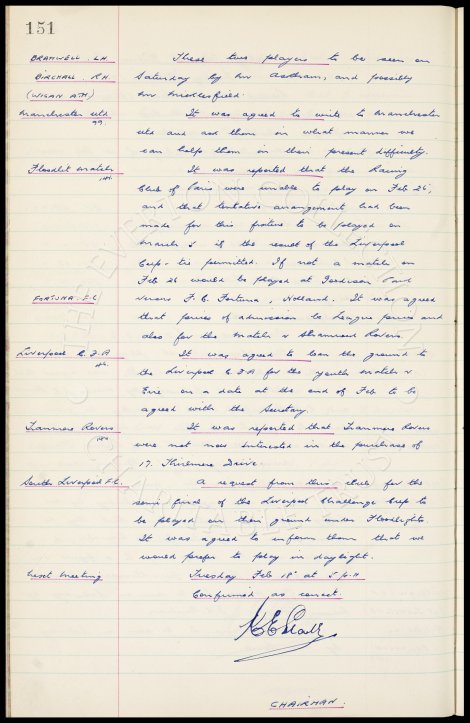 151
BRAMWELL. L.H. These two players to be seen on
BIRCHALL. R.H. Saturday by Mr Askham, and possibly
(WIGAN ATH) Mr Micklesfield.
Manchester Utd It was agreed to write to Manchester
99. Utd and ask them in what manner we
can help them in their present difficulty.
Floodlit Match It was reported that the Racing
Club of Paris were unable to play on Feb 26,
and that tentative arrangement had been
made for this fixture to be played on
March 5 if the result of the Liverpool
Cup-tie permitted. If not a match on
Feb 26 would be played at Goodison Park
FORTUNA. F.C. versus F.C. Fortuna, Holland. It was agreed
that prices of admission be League prices and
also for the match v Shamrock Rovers.
Liverpool C.F.A It was agreed to loan the ground to
the Liverpool C F A for the youth match v
Eire on a date at the end of Feb to be
agreed with the Secretary.
Tranmere Rovers It was reported that Tranmere Rovers
were not now interested in the purchase of
17. Thirlmere Drive.
South Liverpool F.C. A request from this club for the
semi final of the Liverpool Challenge Cup to
be played on their ground under Floodlights.
It was agreed to inform them that we
would prefer to play in daylight.
Next meeting Tuesday Feb 18th at 5 p.m
Confirmed as correct.
CHAIRMAN.